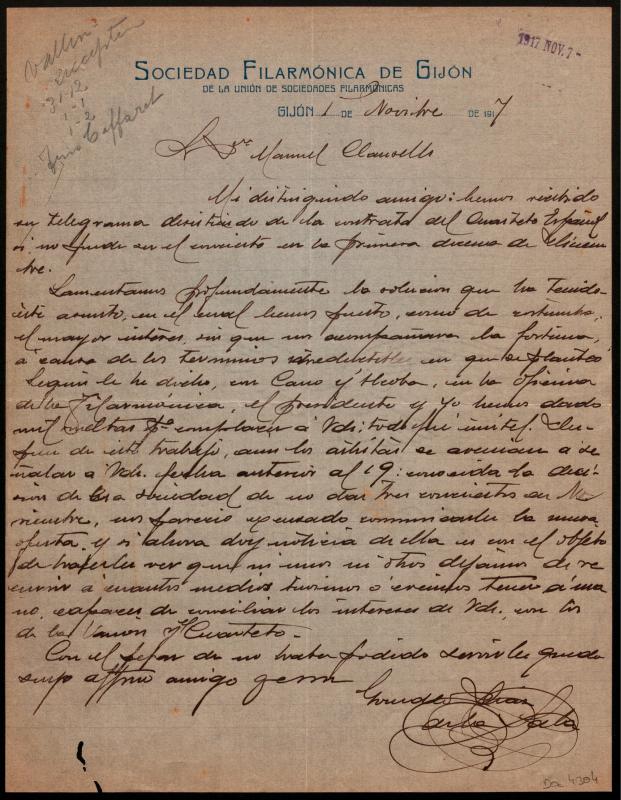 Vallin
excepten
31-12
1-1
1-2
Caffaret
1917 NOV. 7-
SOCIEDAD FILARMÓNICA DE GIJÓN
DE LA UNIÓN DE SOCIEDADES FILARMÓNICAS
GIJÓN 1 DE Novitre DE 1917
S. Dr. Manuel Clausells
Mi distinguido amigo: hemos recibido
su telegrama desistiendo de la contrata del Cuarteto Español
si no puede ser el concierto en la primera decena de Diciem
bre.
Lamentamos profundamente la solucion que ha tenido
éste asunto, en el cual hemos puesto, como de costumbre,
el mayor interés, sin que nos acompañara la fortuna,
á causa de los terminos irreductibles en que se planteó
Según le he dicho, con Cano y Alcoba, en la oficina
de la Filarmónica, el presidente y yo hemos dado
mil vueltas pª complacer á Vds: todo fué inútil. Des-
pues de este trabajo, aun los artistas se avenian á se
ñalar á Vds. fecha anterior al 19: conocida la deci-
sion de esa sociedad de no dar tres conciertos en No
viembre, nos pareció excusado comunicarle la nueva
oferta. y si ahora doy noticia de ella es con el objeto
de hacerles ver que ni unos ni otros dejamos de re
currir á cuantos medios tuvimos ó creimos tener á ma
no, capaces de conciliar los intereses de Vds. con los
de la Unión y Cuarteto.-
Con el pesar de no haber podido servirles queda
suyo affmo amigo
de la Sala
Do 4304